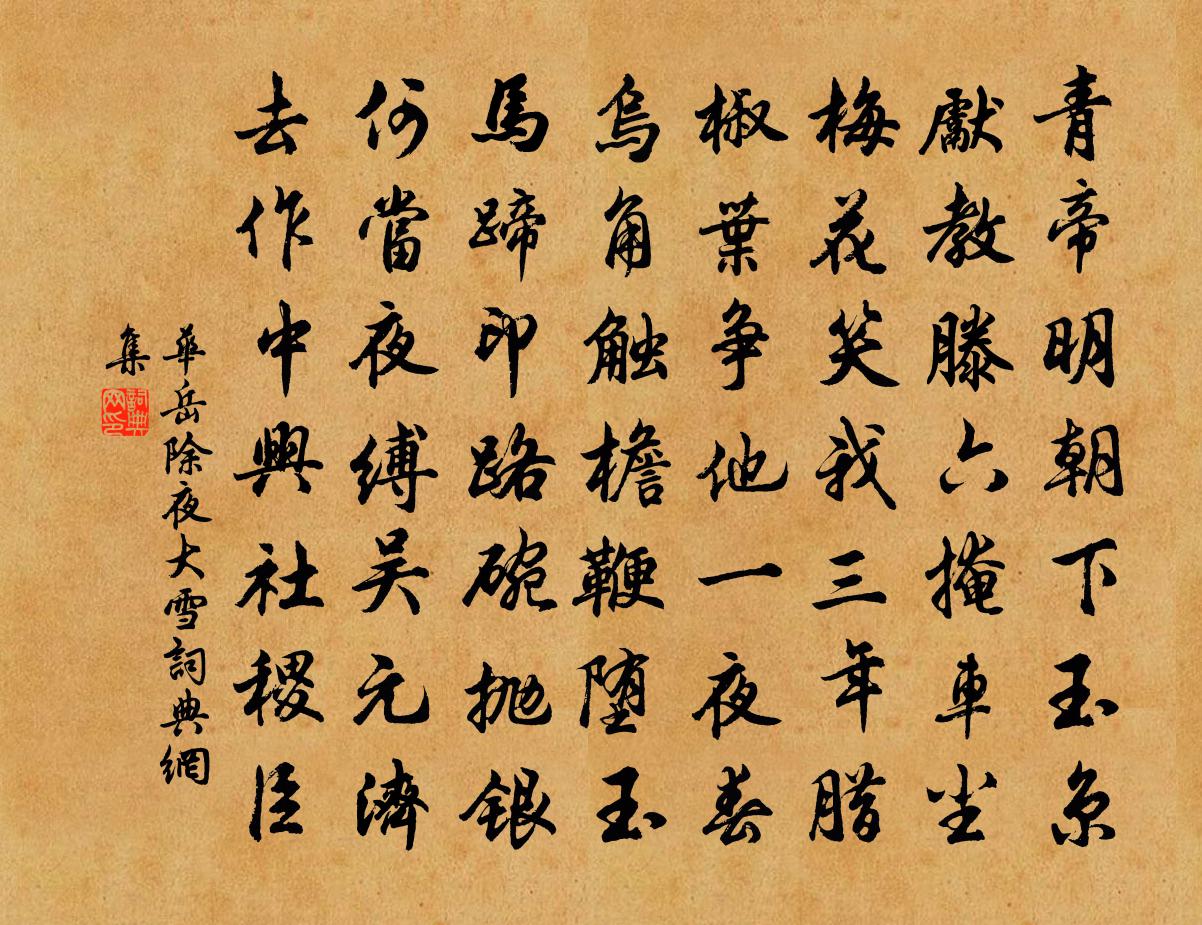 青帝明朝下玉京
獻教滕六掩車尘
梅花笑我三年腊
椒葉争他一夜春
烏角触檐鞭堕玉
馬蹄印路碗抛銀
何當夜縛吴元濟
去作中興社稷臣
華岳除夜大雪詞典網
集
詞典
网印